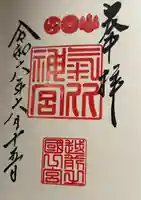 奉拝
氣比
神宮
越前
國一宮
令和六年六月十五日